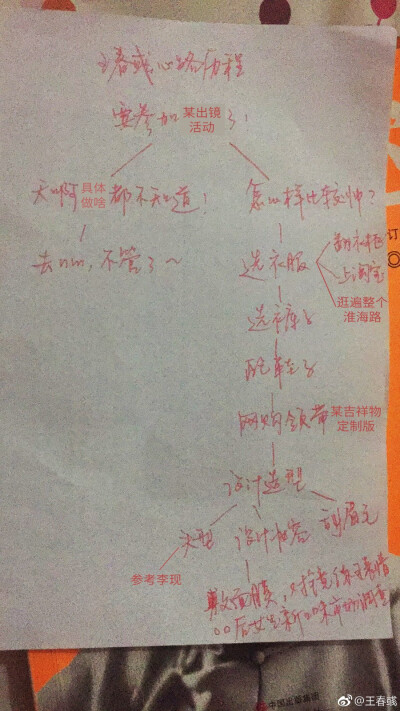 王春彧心路历程
要参加某出镜活动了!
天啊具体做啥都不知道!
怎么样比较帅?
去nm,不管了~
选衣服
翻衣柜
上淘宝
逛遍整个淮海路
选裤子
配鞋子
网购领带某吉祥物定制版
设计造型
头型
设计妆容
刮眉毛
参考李现
敷面膜,
00后女生新
市场调查
订
中国出版集团
@王春彧